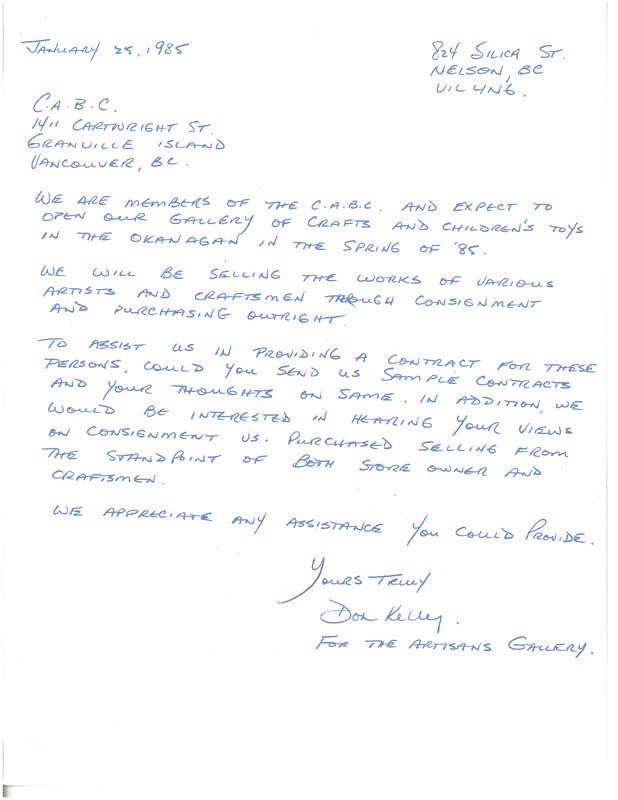 JANUARY 25, 1985
824 SILICA ST.
NELSON, BC
V1L 4N6.
C.A.B.C.
1411 CARTWRIGHT ST.
GRANVILLE ISLAND
VANCOUVER, BC.
WE ARE MEMBERS OF THE C.A.B.C. AND EXPECT TO
OPEN OUR GALLERY OF CRAFTS AND CHILDREN'S TOYS
IN THE OKANAGAN IN THE SPRING OF '85.
WE WILL BE SELLING THE WORKS OF VARIOUS
ARTISTS AND CRAFTSMEN THROUGH CONSIGNMENT
AND PURCHASING OUTRIGHT.
TO ASSIST US IN PROVIDING A CONTRACT FOR THESE
PERSONS, COULD YOU SEND US SAMPLE CONTRACTS
AND YOUR THOUGHTS ON SAME. IN ADDITION, WE
WOULD BE INTERESTED IN HEARING YOUR VIEWS
ON CONSIGNMENT VS. PURCHASED SELLING FROM
THE STANDPOINT OF BOTH STORE OWNER AND
CRAFTSMEN.
WE APPRECIATE ANY ASSISTANCE YOU COULD PROVIDE.
YOURS TRULY
Don Kelly.
FOR THE ARTISANS GALLERY.